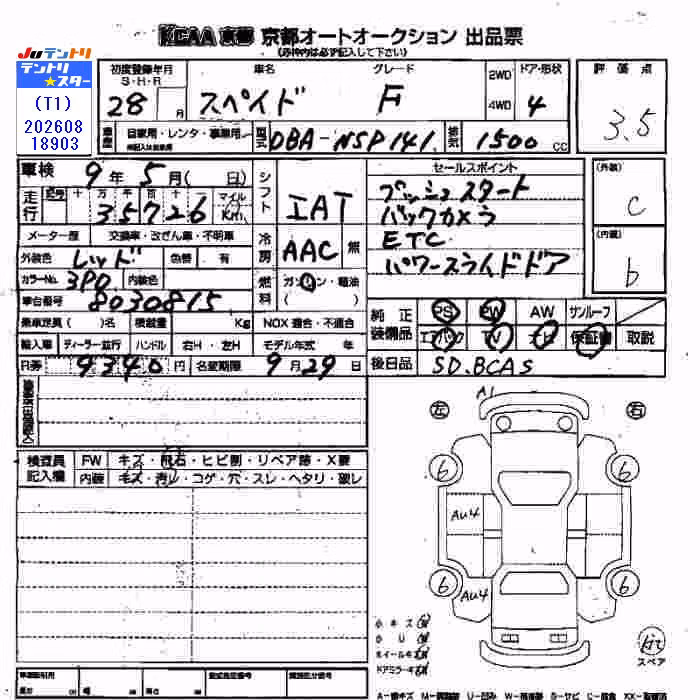 KCAA 京都 京都オートオークション 出品票
(赤枠内は必ず記入して下さい)
JUテントリ
テントリスター
(T1)
202608
18903
初度登録年月
S・H・R
28 月
車名
スペイド
グレード
F
2WD
4WD
ドア・形状
4
評価点
3.5
車歴
自家用・レンタ・事業用
型式
DBA-NSP141
排気
1500 CC
車検
9 年 5 月 ( 日)
走行
十 万 千 百 十 一
35726
マイル
Km
シフト
IAT
セールスポイント
プッシュスタート
バックカメラ
ETC
パワースライドドア
(外装)
C
(内装)
b
メーター歴
交換車・改ざん車・不明車
冷房
AAC
無
外装色
レッド
色替
有
カラーNo.
3P0
内装色
燃料
ガソリン・軽油
( )
車台番号
8030815
乗車定員 ( )名
積載量
Kg
NOX 適合・不適合
輸入車
ディーラー 並行
ハンドル
右H・左H
モデル年式 年
R券
9340 円
名変期限
9 月 29 日
純正装備品
PS
PW
AW
サンルーフ
エアバッグ
TV
ナビ
保証書
取説
後日品
SD.BCAS
検査員記入欄
FW
キズ・飛石・ヒビ割・リペア跡・X要
内装
キズ・汚レ・コゲ・穴・スレ・ヘタリ・破レ
左
右
A1
6
6
AU4
6
6
AU4
小キズ
小U
ホイールキズ
ドアミラーキズ
スペア